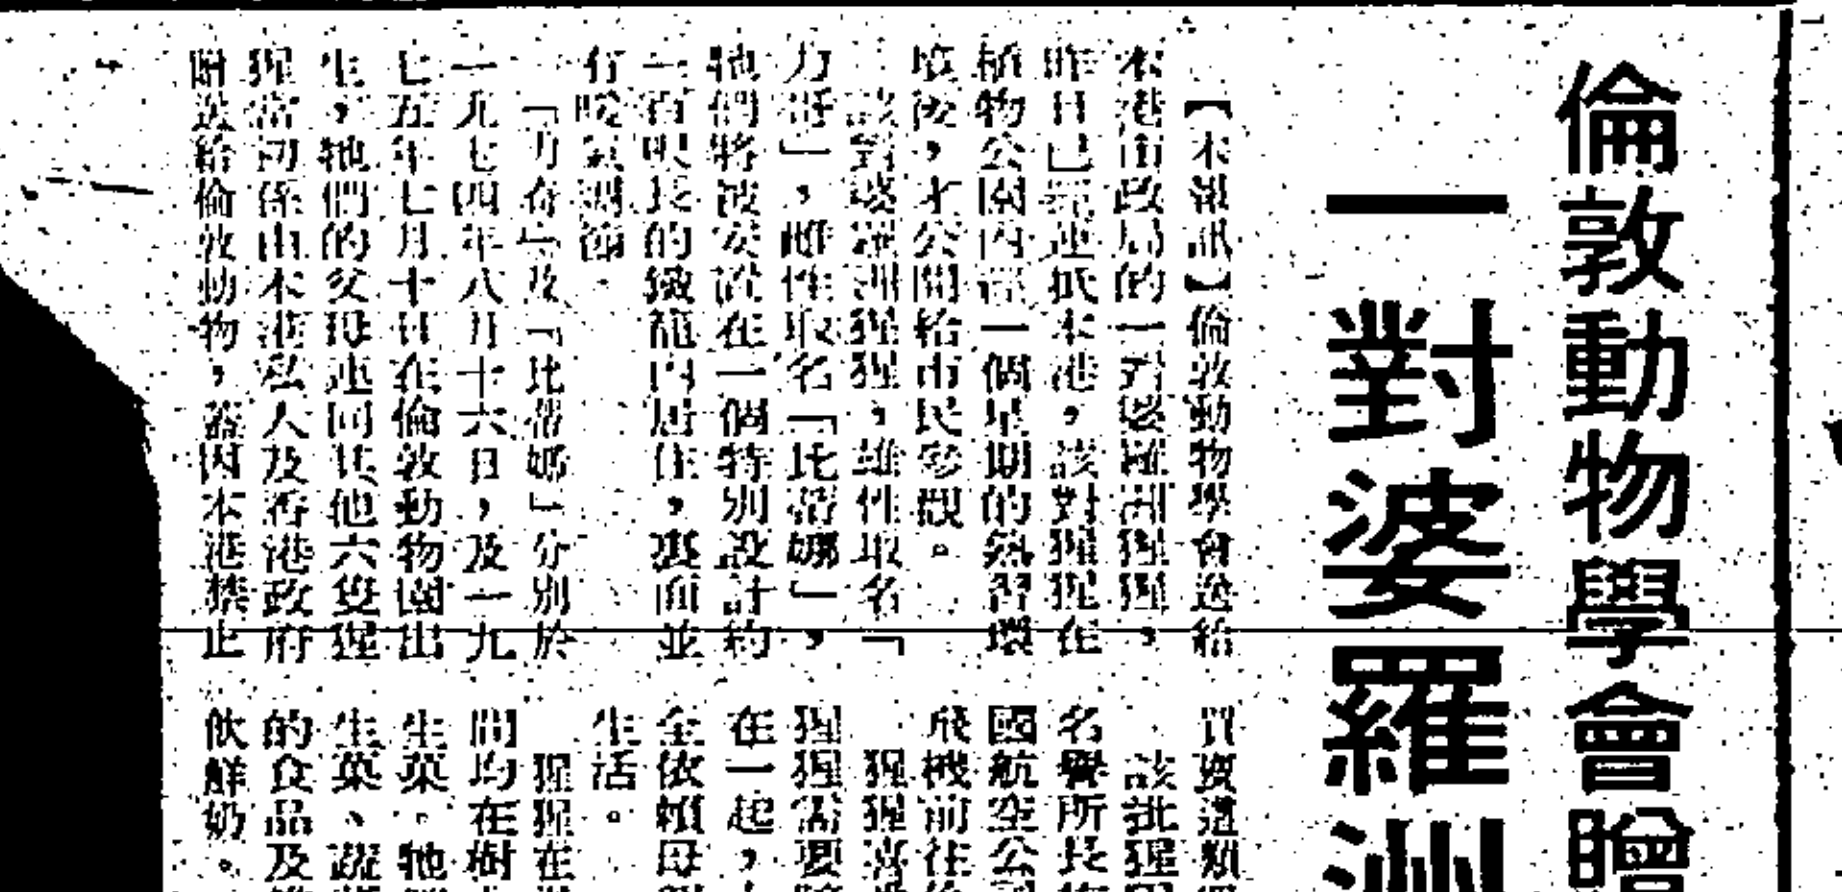 倫敦動物學會贈
一對婆羅洲
【本報訊】倫敦動物學會送給
本港市政局的一對婆羅洲猩猩,
昨日已運抵本港,該對猩猩在
植物公園內一個星期的熟習環
境後,才公開給市民參觀。
該對婆羅洲猩猩,雄性取名「
力哥」,雌性取名「比蒂娜」,
牠們將被安置在一個特別設計約
一百呎長的鐵籠內居住,裏面並
有暖氣調節。
「力奇」及「比蒂娜」分別於
一九七四年八月十六日,及一九
七五年七月十日在倫敦動物園出
生,牠們的父母連同其他六隻猩
猩當初係由本港私人及香港政府
贈送給倫敦動物,蓋因本港禁止
買賣這類
該批猩
名譽所長
國航空公
飛機前往
猩猩喜
猩猩需要
在一起,
全依賴母
生活。
猩猩在
間均在樹
生菜。牠
生菓、蔬
的食品及
飲鮮奶。